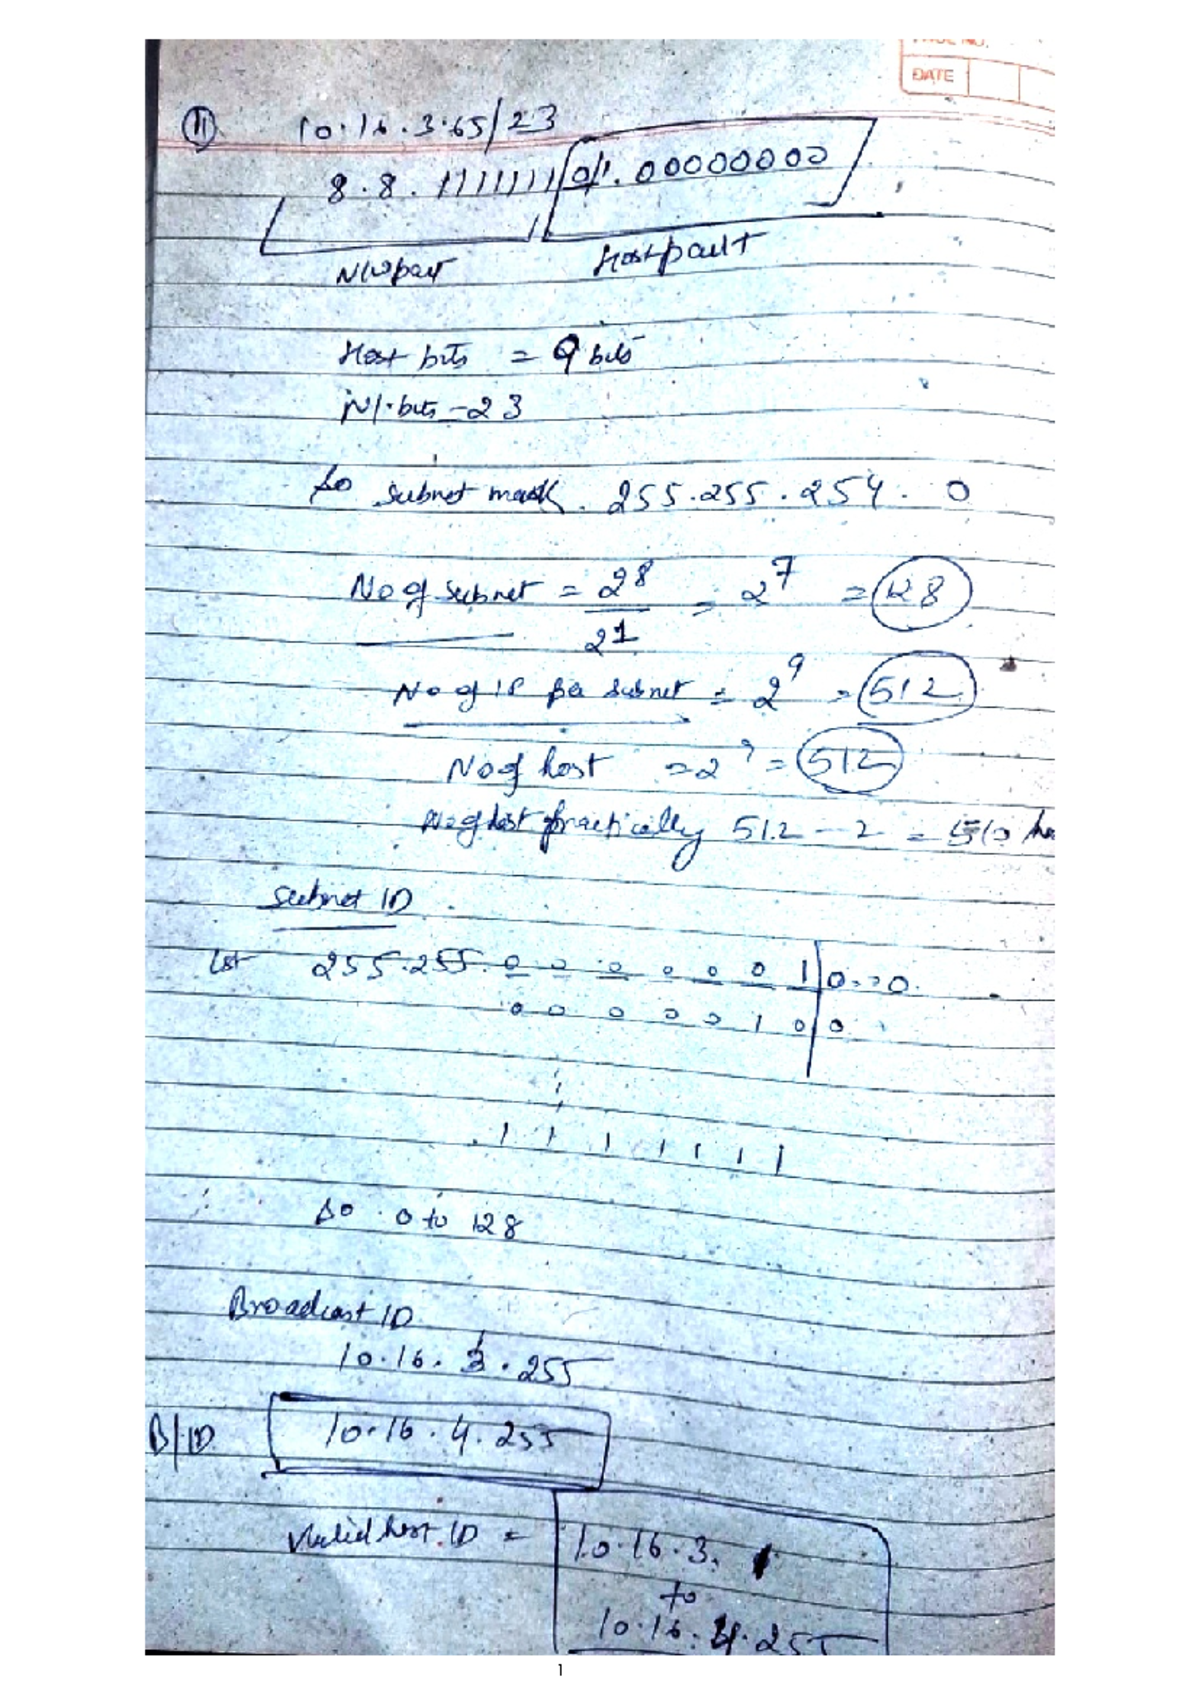 PAGE NO.
DATE
11 10.16.3.65/23
8.8.11111110.00000000
N/w part Host part
Host bits = 9 bits
N/.bits - 23
So subnet mask. 255.255.254.0
No of subnet = 2^8 / 2^1 = 2^7 = 128
No of IP per subnet = 2^9 = 512
No of host = 2^9 = 512
No of host practically 512 - 2 = 510
Subnet ID
1st 255.255.0 0 0 0 0 0 1 | 0..0.
0 0 0 0 0 1 0 | 0
. 1 1 1 1 1 1 1
So 0 to 128
Broadcast ID
10.16.3.255
B/ID 10.16.4.255
Valid host ID = 10.16.3.1
to
10.16.4.255
1